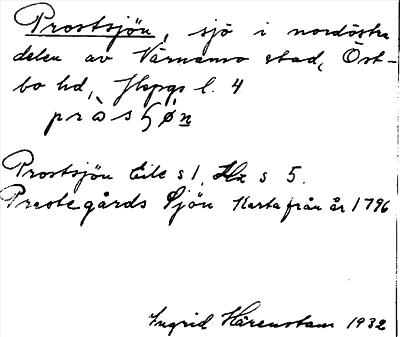 Prostsjön, sjö i nordöstra
delen av Värnamo stad, Öst-
bo hd, Jkpgs l. 4
pròsɧøn
Prostsjön Eile s 1, Hz s 5.
Prestegårds Sjön Karta från år 1796
Ingrid Härenstam 1932